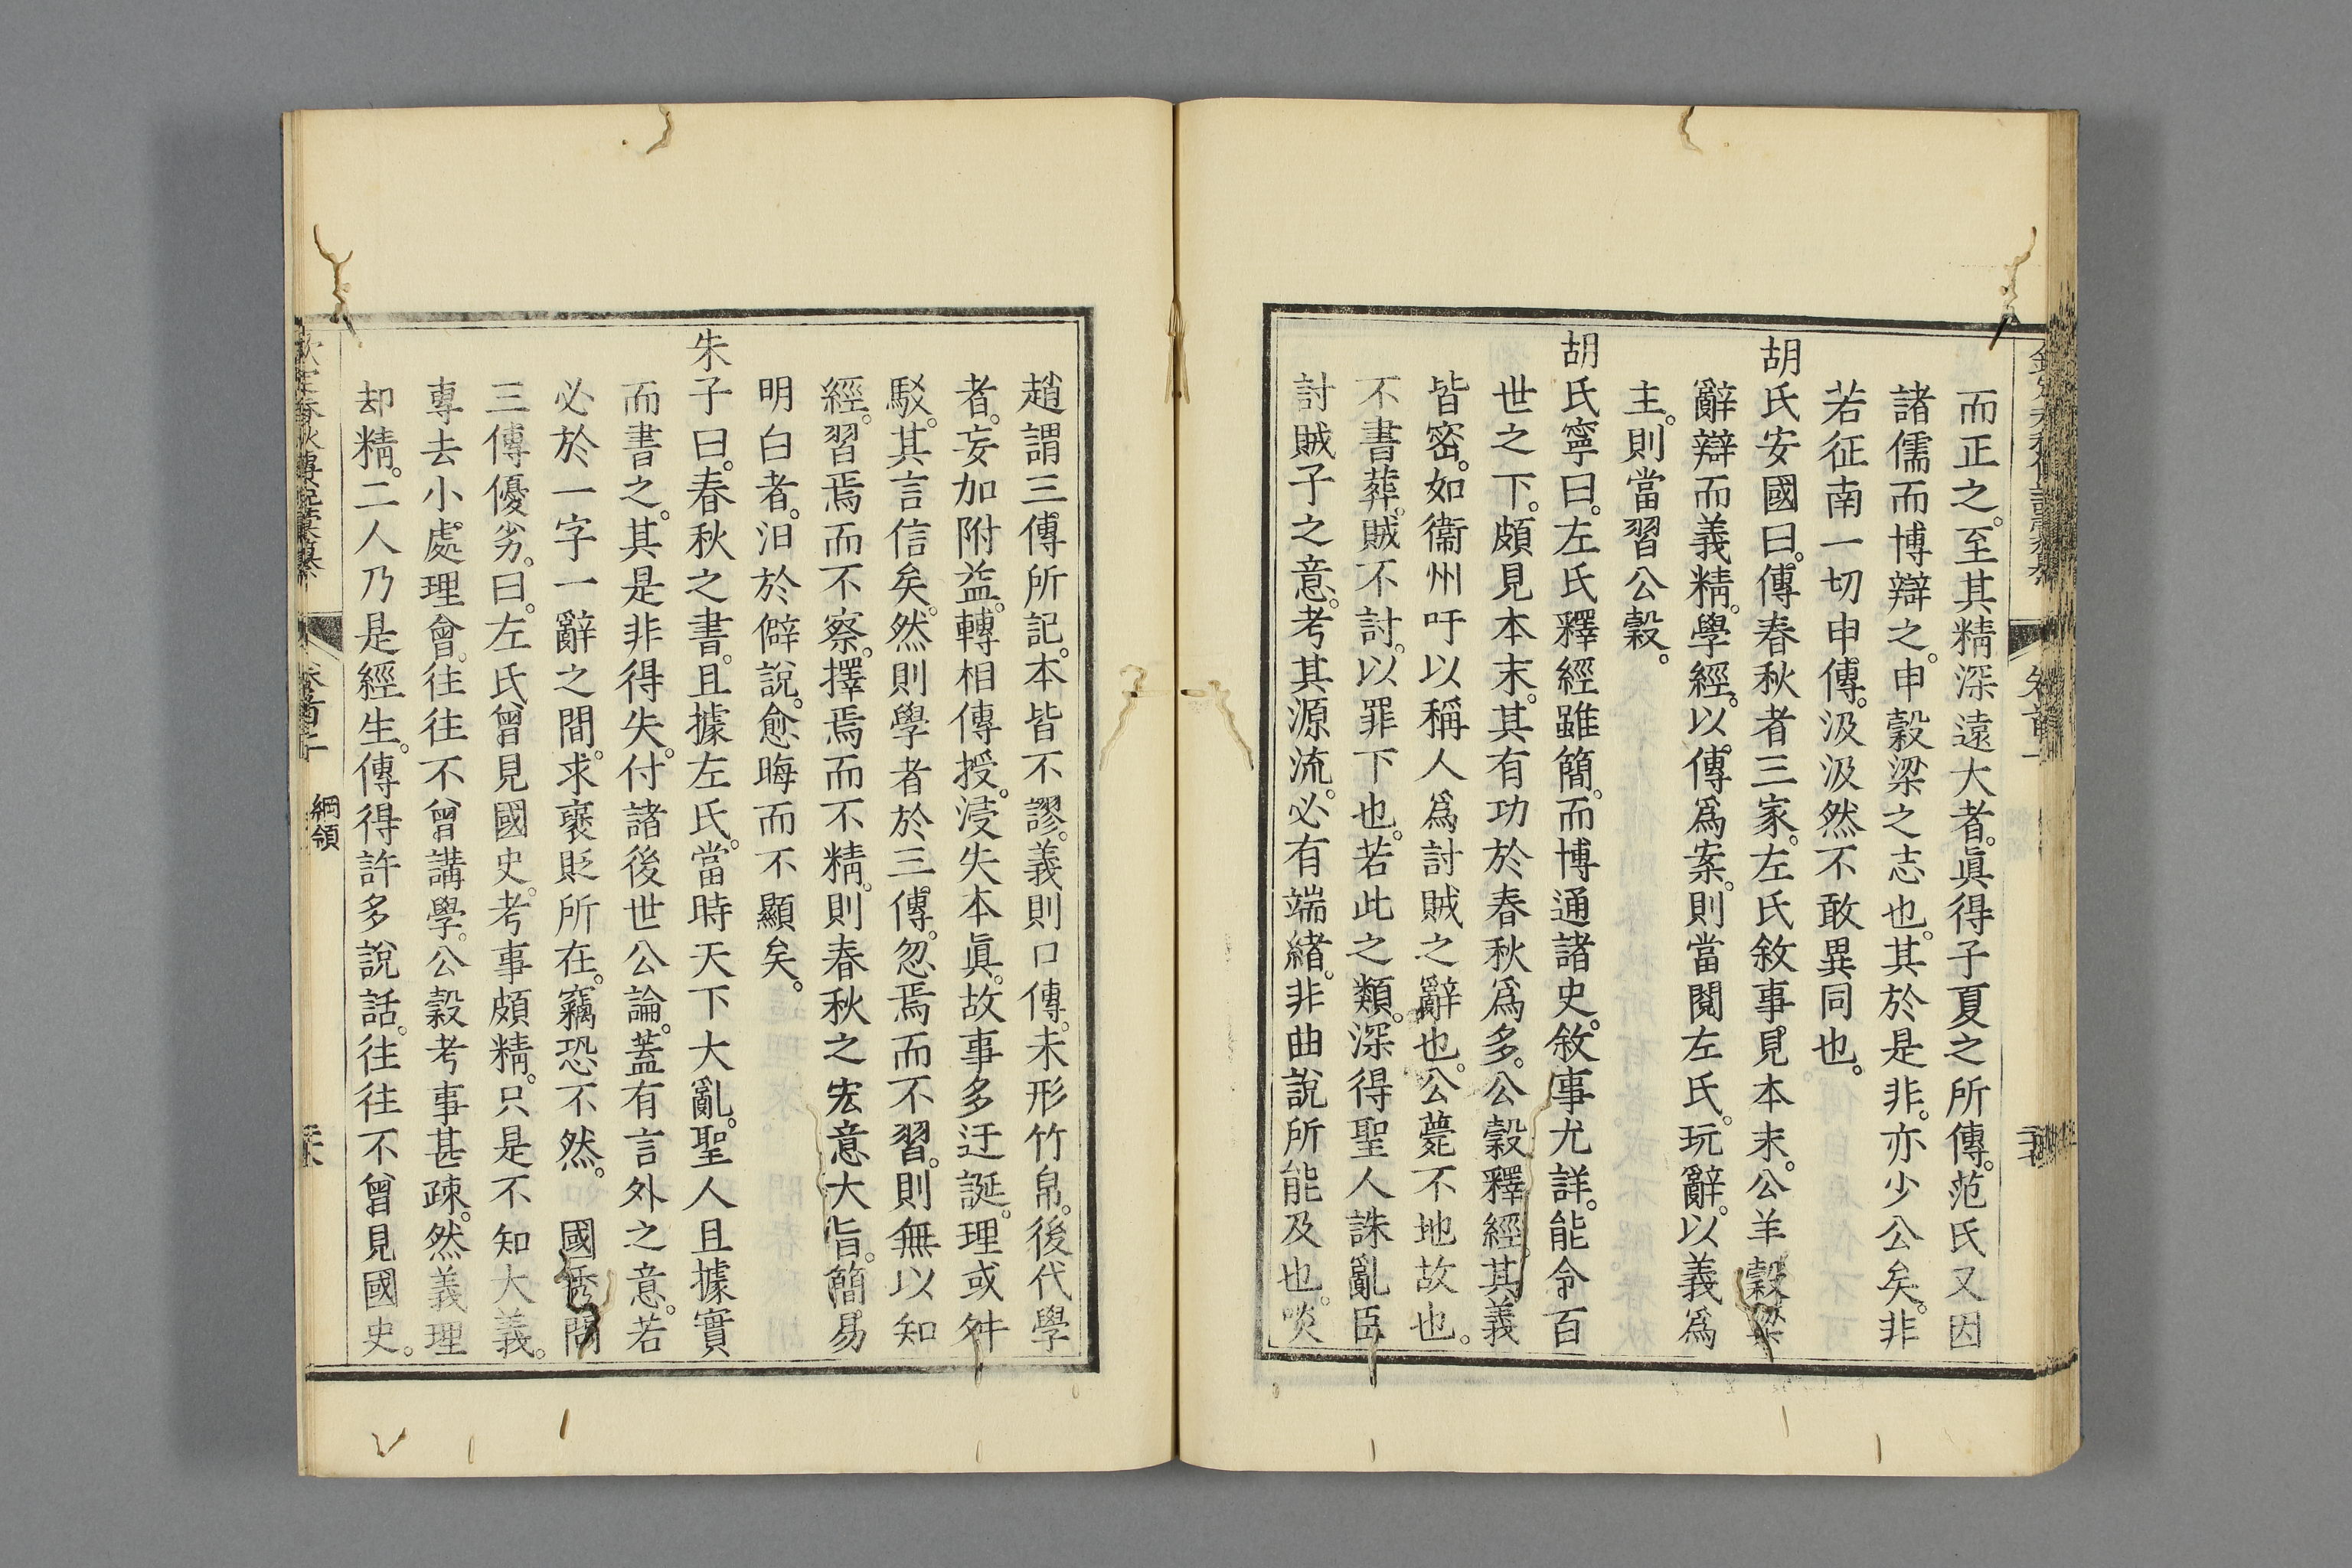 而正之。至其精深遠大者。眞得子夏之所傳。范氏又因
諸儒而博辯之。申穀梁之志也。其於是非。亦少公矣。非
若征南一切申傳。汲汲然不敢異同也。
胡氏安國曰。傳春秋者三家。左氏敘事。見本末。公羊穀梁
辭辯而義精。學經。以傳爲案。則當閱左氏。玩辭。以義爲
主。則當習公穀。
胡氏寧曰。左氏釋經雖簡。而博通諸史。敘事尤詳。能令百
世之下。頗見本末。其有功於春秋爲多。公穀釋經。其義
皆密。如衞州吁以稱人爲討賊之辭也。公薨不地故也。
不書葬。賊不討。以罪下也。若此之類。深得聖人誅亂臣
討賊子之意。考其源流。必有端緒。非曲說所能及也。啖
趙謂三傳所記。本皆不謬。義則口傳。未形竹帛。後代學
者。妄加附益。轉相傳授。浸失本眞。故事多迂誕。理或舛
駁。其言信矣。然則學者於三傳。忽焉而不習。則無以知
經。習焉而不察。擇焉而不精。則春秋之宏意大旨。簡易
明白者。汨於僻說。愈晦而不顯矣。
朱子曰。春秋之書。且據左氏。當時天下大亂。聖人且據實
而書之。其是非得失。付諸後世公論。蓋有言外之意。若
必於一字一辭之間。求褒貶所在。竊恐不然。　國秀問
三傳優劣。曰。左氏曾見國史。考事頗精。只是不知大義。
專去小處理會。往往不曾講學。公穀考事甚疎。然義理
却精。二人乃是經生。傳得許多說話。往往不曾見國史。
欽定春秋傳說彙纂
卷首
綱領